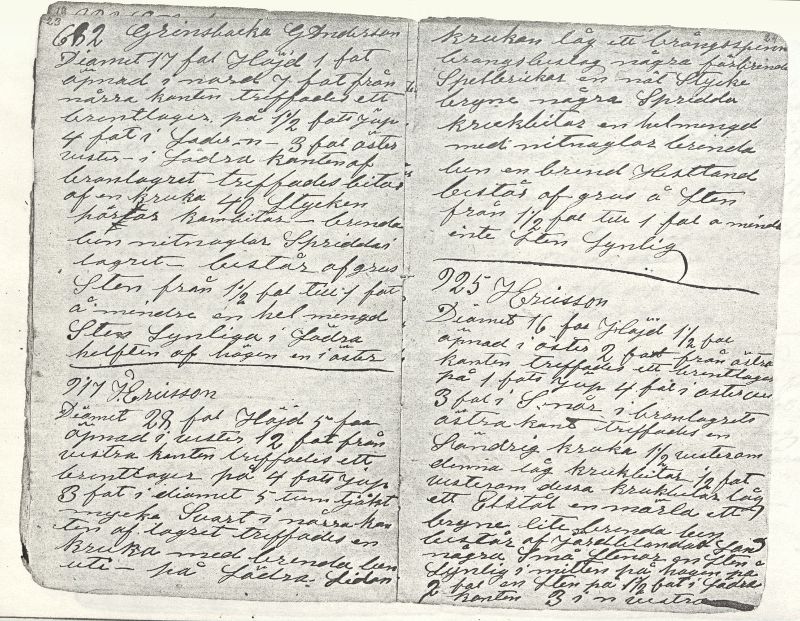 23
682 Grinsbacka G Anderson
Diamet 17 fot Höjd 1 fot
öpnad i nord 7 fot från
nårra kanten treffades ett
brentlager på 1 1/2 fots jup
4 fot i Söder n - 3 fot öster
vester - i Södra kanten af
branlagret treffades bitar
af en kruka 42 Stycken
hartar kambitar - brenda
ben nitnaglar Spridda i
lagret - består af grus
Sten från 1/2 fot till 1 fot
å mindre en hel mengd
Sten Synliga i Södra
helften af högen en i öster
917 J. Ericsson
Diamet 28 fot Höjd 5 fot
öpnad i vester 12 fot från
vestra kanten treffades ett
brentlager på 4 fots jup
3 fot i diamet 5 tum tjokt
mycke Svart i nårra kan
ten af lagret treffades en
kruka med brenda ben
uti - på Södra Sidan
krukan låg ett brångsspenn
brångsbeslag några förbrenda
Spelbrickor en nål Stycke
bryne några Spridda
krukbitar en hel mengd
med nitnaglar brenda
ben en brend Hesttand
består af grus å Sten
från 1 1/2 fot till 1 fot a mindre
einte Sten Synlig
925 J. Ericsson
Diamet 16 fot Höjd 1 1/2 fot
öpnad i öster 2 fot från östra
kanten treffades ett brentlager
på 1 fots jup 4 fot i öster ves
3 fot i S. når i branlagrets
östra kant treffades en
Söndrig kruka 1/2 vesterom
denna låg krukbitar 1/2 fot
vesterom dessa krukbitar låg
ett Eldstål en märla ett
bryne lite brenda ben
består af Jordblandat Sand
några Små Stenar en Sten
Synlig i mitten på högen på
2 fot en Sten på 1 1/2 fot i Södra
kanten 3 i n vestra